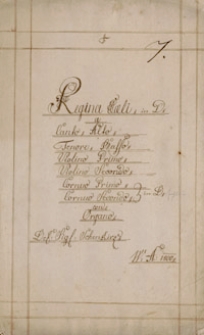 7.
Regina Cæli, in D.
à
Canto, Alto,
Tenore, Basso
Violino Primo,
Violino Secondo
Corno Primo,
Corno Secondo, in D.
con
Organo
Del Sigl.